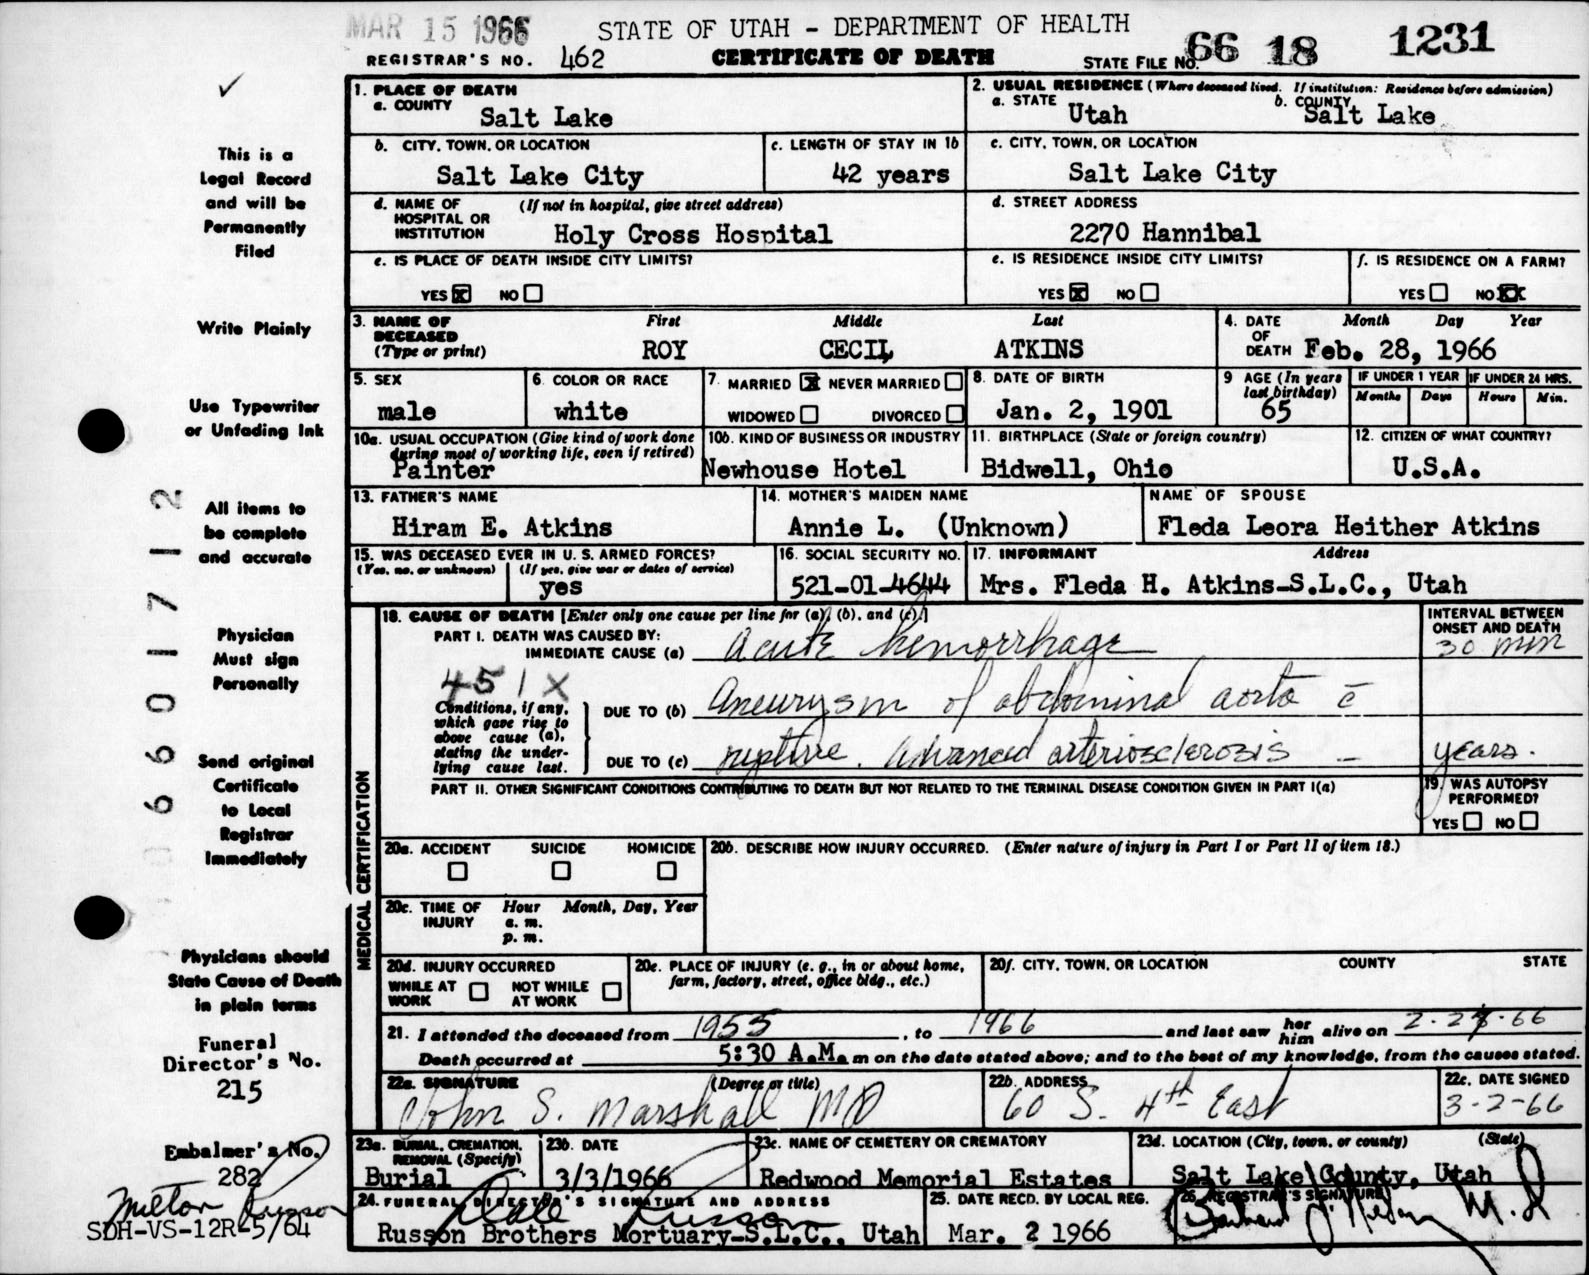 MAR 15 1966
STATE OF UTAH - DEPARTMENT OF HEALTH
REGISTRAR'S NO. 462
CERTIFICATE OF DEATH
STATE FILE NO. 66 18 1231
1. PLACE OF DEATH
a. COUNTY
Salt Lake
2. USUAL RESIDENCE (Where deceased lived. If institution: Residence before admission)
a. STATE
Utah
b. COUNTY
Salt Lake
b. CITY, TOWN, OR LOCATION
Salt Lake City
c. LENGTH OF STAY IN 1b
42 years
c. CITY, TOWN, OR LOCATION
Salt Lake City
d. NAME OF HOSPITAL OR INSTITUTION
(If not in hospital, give street address)
Holy Cross Hospital
d. STREET ADDRESS
2270 Hannibal
e. IS PLACE OF DEATH INSIDE CITY LIMITS?
YES X NO
e. IS RESIDENCE INSIDE CITY LIMITS?
YES X NO
f. IS RESIDENCE ON A FARM?
YES NO XX
3. NAME OF DECEASED (Type or print)
First Middle Last
ROY CECIL ATKINS
4. DATE OF DEATH
Month Day Year
Feb. 28, 1966
5. SEX
male
6. COLOR OR RACE
white
7. MARRIED X NEVER MARRIED
WIDOWED DIVORCED
8. DATE OF BIRTH
Jan. 2, 1901
9 AGE (In years last birthday)
65
IF UNDER 1 YEAR
Months Days
IF UNDER 24 HRS.
Hours Min.
10a. USUAL OCCUPATION (Give kind of work done during most of working life, even if retired)
Painter
10b. KIND OF BUSINESS OR INDUSTRY
Newhouse Hotel
11. BIRTHPLACE (State or foreign country)
Bidwell, Ohio
12. CITIZEN OF WHAT COUNTRY?
U.S.A.
13. FATHER'S NAME
Hiram E. Atkins
14. MOTHER'S MAIDEN NAME
Annie L. (Unknown)
NAME OF SPOUSE
Fleda Leora Heither Atkins
15. WAS DECEASED EVER IN U. S. ARMED FORCES?
(Yes, no, or unknown) (If yes, give war or dates of service)
yes
16. SOCIAL SECURITY NO.
521-01-4644
17. INFORMANT Address
Mrs. Fleda H. Atkins-S.L.C., Utah
MEDICAL CERTIFICATION
18. CAUSE OF DEATH [Enter only one cause per line for (a), (b), and (c).]
PART I. DEATH WAS CAUSED BY:
IMMEDIATE CAUSE (a) Acute hemorrhage
INTERVAL BETWEEN ONSET AND DEATH
30 min
451X
Conditions, if any, which gave rise to above cause (a), stating the underlying cause last.
DUE TO (b) Aneurysm of abdominal aorta c̄
DUE TO (c) rupture. Advanced arteriosclerosis -
years.
PART II. OTHER SIGNIFICANT CONDITIONS CONTRIBUTING TO DEATH BUT NOT RELATED TO THE TERMINAL DISEASE CONDITION GIVEN IN PART I(a)
19. WAS AUTOPSY PERFORMED?
YES NO
20a. ACCIDENT SUICIDE HOMICIDE
20b. DESCRIBE HOW INJURY OCCURRED. (Enter nature of injury in Part I or Part II of item 18.)
20c. TIME OF INJURY
Hour Month, Day, Year
a. m.
p. m.
20d. INJURY OCCURRED
WHILE AT WORK NOT WHILE AT WORK
20e. PLACE OF INJURY (e. g., in or about home, farm, factory, street, office bldg., etc.)
20f. CITY, TOWN, OR LOCATION COUNTY STATE
21. I attended the deceased from 1955, to 1966 and last saw her him alive on 2-28-66
Death occurred at 5:30 A.M. m on the date stated above; and to the best of my knowledge, from the causes stated.
22a. SIGNATURE (Degree or title)
John S. Marshall MD
22b. ADDRESS
60 S. 4th East
22c. DATE SIGNED
3-2-66
23a. BURIAL, CREMATION, REMOVAL (Specify)
Burial
23b. DATE
3/3/1966
23c. NAME OF CEMETERY OR CREMATORY
Redwood Memorial Estates
23d. LOCATION (City, town, or county) (State)
Salt Lake County, Utah
24. FUNERAL DIRECTOR'S SIGNATURE AND ADDRESS
Dale Russon
Russon Brothers Mortuary-S.L.C., Utah
25. DATE RECD. BY LOCAL REG.
Mar. 2 1966
26. REGISTRAR'S SIGNATURE
M.D
This is a
Legal Record
and will be
Permanently
Filed
Write Plainly
Use Typewriter
or Unfading Ink
All items to
be complete
and accurate
Physician
Must sign
Personally
Send original
Certificate
to Local
Registrar
Immediately
Physicians should
State Cause of Death
in plain terms
Funeral
Director's No.
215
Embalmer's No.
282
Milton Russon
SDH-VS-12R-5/64
66017172